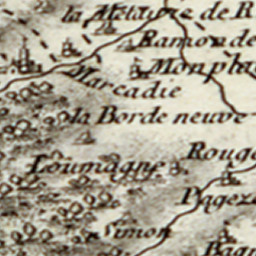 la Metairie de R
Ramonde
Monplai
Marcadie
la Borde neuve
Rouge
Loumagne
Pagez
Simon
Bagn